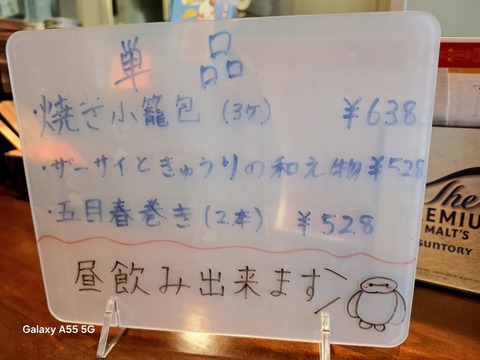 単品
・焼き小籠包（3ヶ） ¥638
・ザーサイときゅうりの和え物 ¥528
・五目春巻き（2本） ¥528
昼飲み出来ます
The
PREMIUM
MALT'S
SUNTORY
Galaxy A55 5G